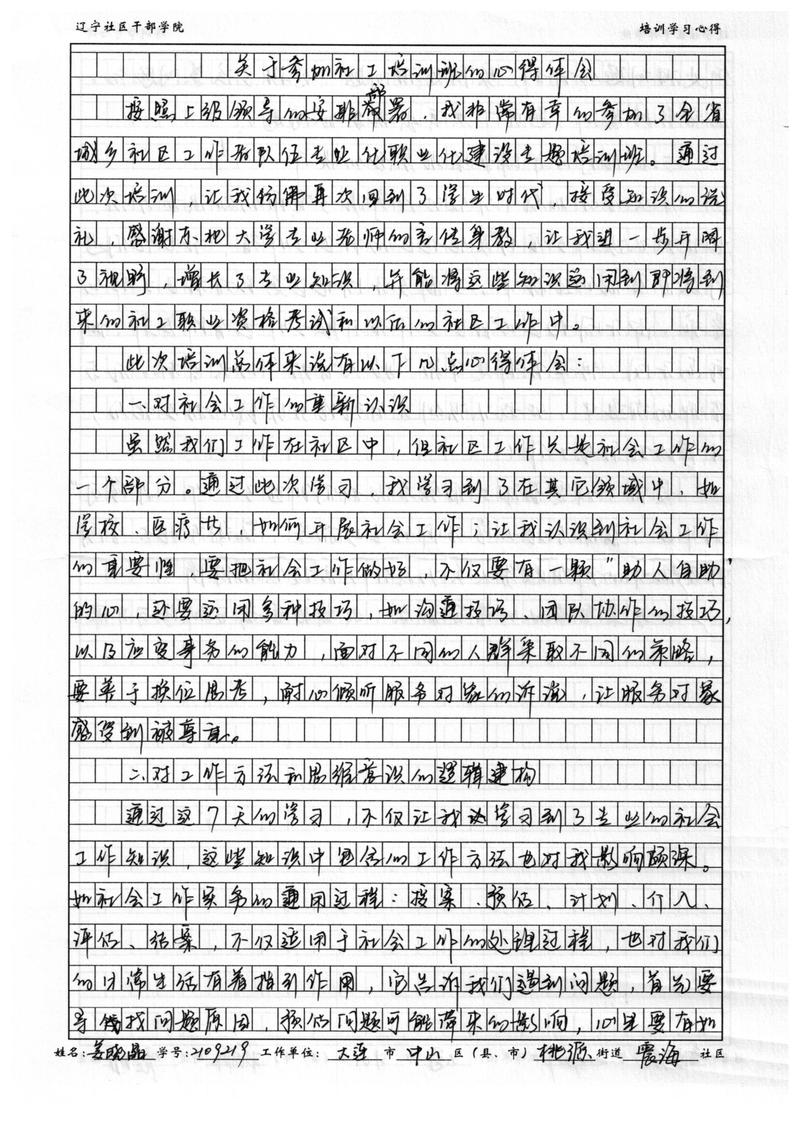 辽宁社区干部学院 培训学习心得
关于参加社工培训班的心得体会
按照上级领导的安排部署,我非常有幸的参加了全省
城乡社区工作者队伍专业化职业化建设专题培训班。通过
此次培训,让我仿佛再次回到了学生时代,接受知识的洗
礼,感谢东北大学专业老师的言传身教,让我进一步开阔
了视野,增长了专业知识,并能将这些知识运用到即将到
来的社工职业资格考试和以后的社区工作中。
此次培训总体来说有以下几点心得体会:
一.对社会工作的重新认识
虽然我们工作在社区中,但社区工作只是社会工作的
一个部分。通过此次学习,我学习到了在其它领域中,如
学校、医疗等,如何开展社会工作;让我认识到社会工作
的重要性,要把社会工作做好,不仅要有一颗“助人自助”
的心,还要运用多种技巧,如沟通技巧,团队协作的技巧,
以及应变事务的能力,面对不同的人群采取不同的策略,
要善于换位思考,耐心倾听服务对象的诉说,让服务对象
感受到被尊重。
二.对工作方法和思维意识的逻辑建构
通过这7天的学习,不仅让我学习到了专业的社会
工作知识,这些知识中包含的工作方法也对我影响颇深。
如社会工作实务的通用过程:接案、预估、计划、介入、
评估、结案,不仅适用于社会工作的处理过程,也对我们
的日常生活有着指引作用,它告诉我们遇到问题,首先要
寻找问题原因,预估问题可能带来的影响,心里要有如
姓名:姜晓晶 学号:2109219 工作单位: 大连 市 中山 区(县、市) 桃源 街道 震海 社区